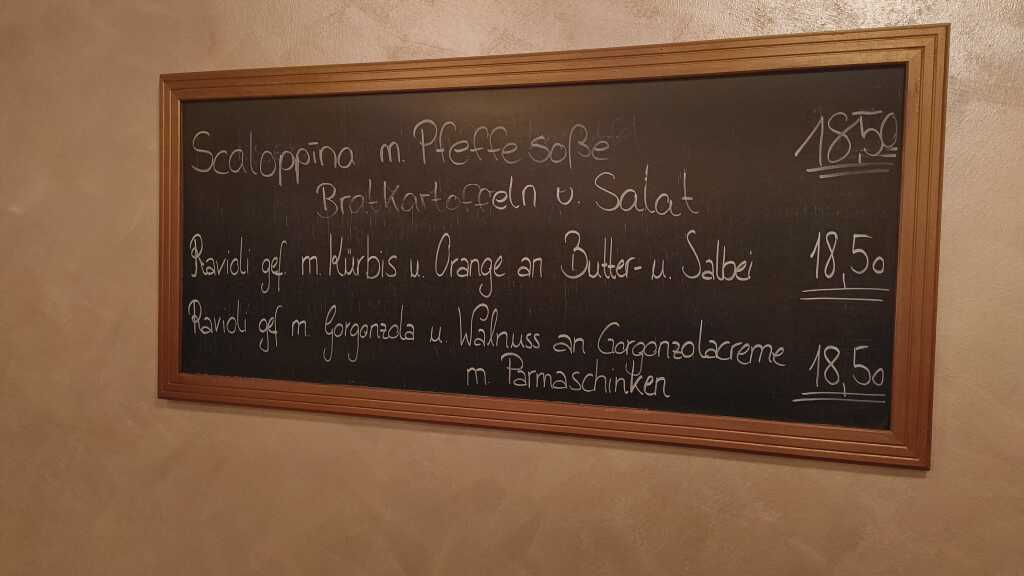 Scaloppina m. Pfeffesoße 18,50
Bratkartoffeln u. Salat
Ravioli gef. m. Kürbis u. Orange an Butter- u. Salbei 18,50
Ravioli gef m. Gorgonzola u. Walnuss an Gorgonzolacreme
m. Parmaschinken 18,50